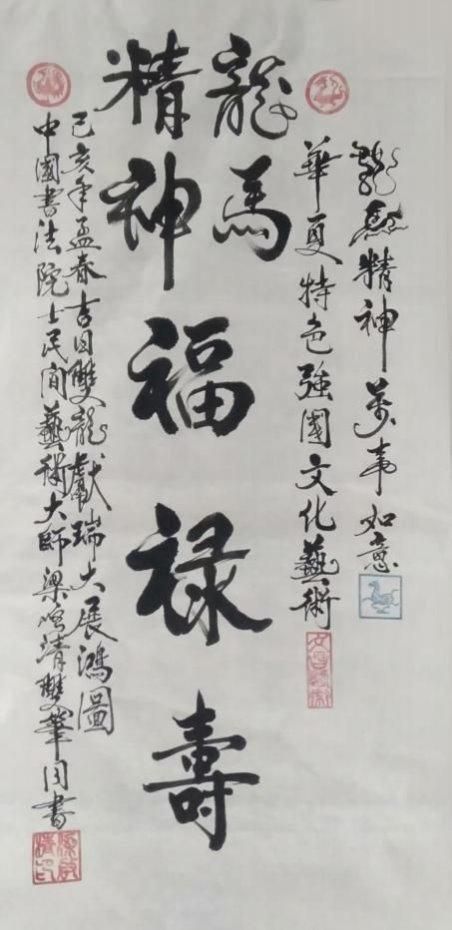 龍馬精神萬事如意
華夏特色強國文化藝術
龍馬
精神
福禄壽
己亥年孟春吉日雙龍獻瑞大展鴻圖
中國書法院士民间藝術大師梁鸣清雙筆同書